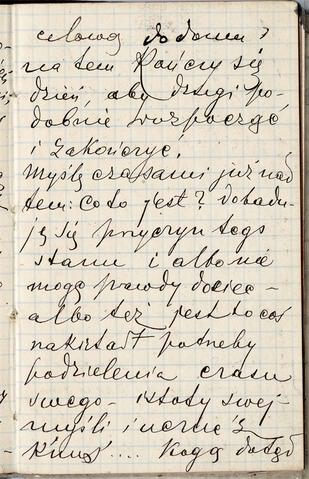 celową do domu i
na tem kończy się
dzień, aby drugi po-
dobnie rozpocząć
i zakończyć.
Myślę czasami już nad
tem: co to jest? dobadu-
ję się przyczyn tego
stanu i albo nie
mogę prawdy dociec -
albo też jest to coś
nakształt potrzeby
podzielenia czasu
swego - istoty swej -
myśli i uczuć z
kimś.... Kogo dotąd